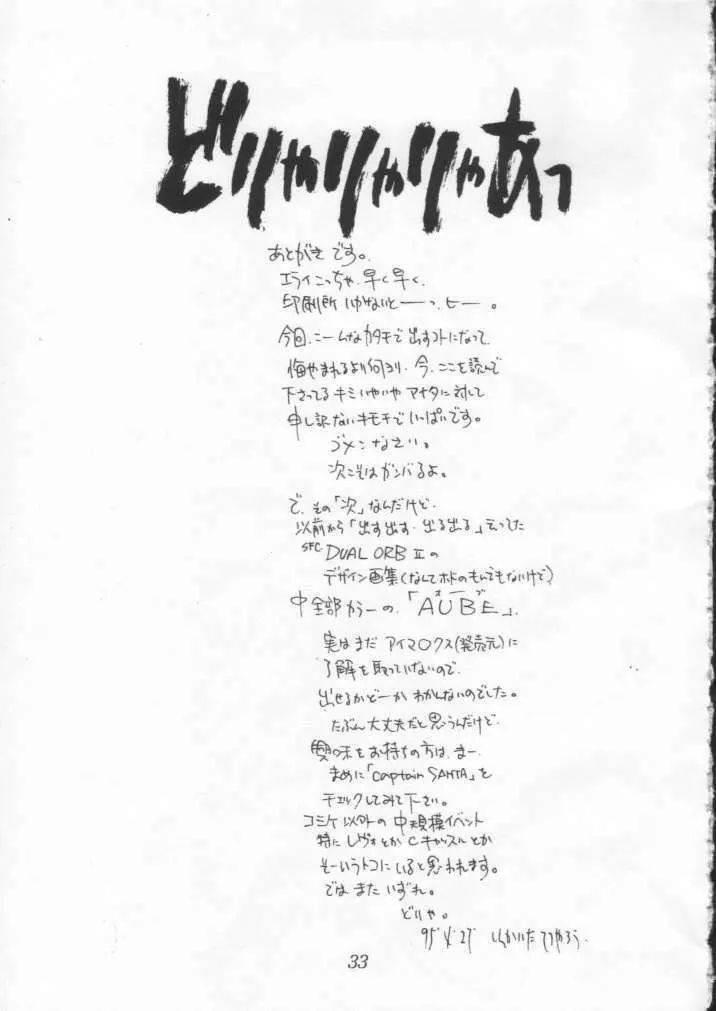 どりゃりゃりゃあっ
あとがきです。
エライこっちゃ、早く早く、
印刷所いかないとーーっ、ヒー。
今回、こーんなカタチで出すコトになって、
悔やまれるより何より、今、ここを読んで
下さってるキミいやいやアナタに対して
申し訳ないキモチでいっぱいです。
ゴメンなさい。
次こそはガンバるよ。
で、その「次」なんだけど、
以前から「出す出す、出る出る」云ってた
SFC DUAL ORB IIの
デザイン画集(なんてホドのもんでもないけど)
中全部カラーの、「AUBE」、
オーブ
実はまだアイマ○クス(発売元)に
了解を取っていないので、
出せるかどーかわかんないのでした。
たぶん大丈夫だと思うんだけど、
興味をお持ちの方は、まー、
まめに「Captain SANTA」を
チェックしてみて下さい。
コミケ以外の中規模イベント
特にレヴォとかCキャッスルとか
そーいうトコにいると思われます。
ではまたいずれ。
どりゃ。
95' 4' 27'
33